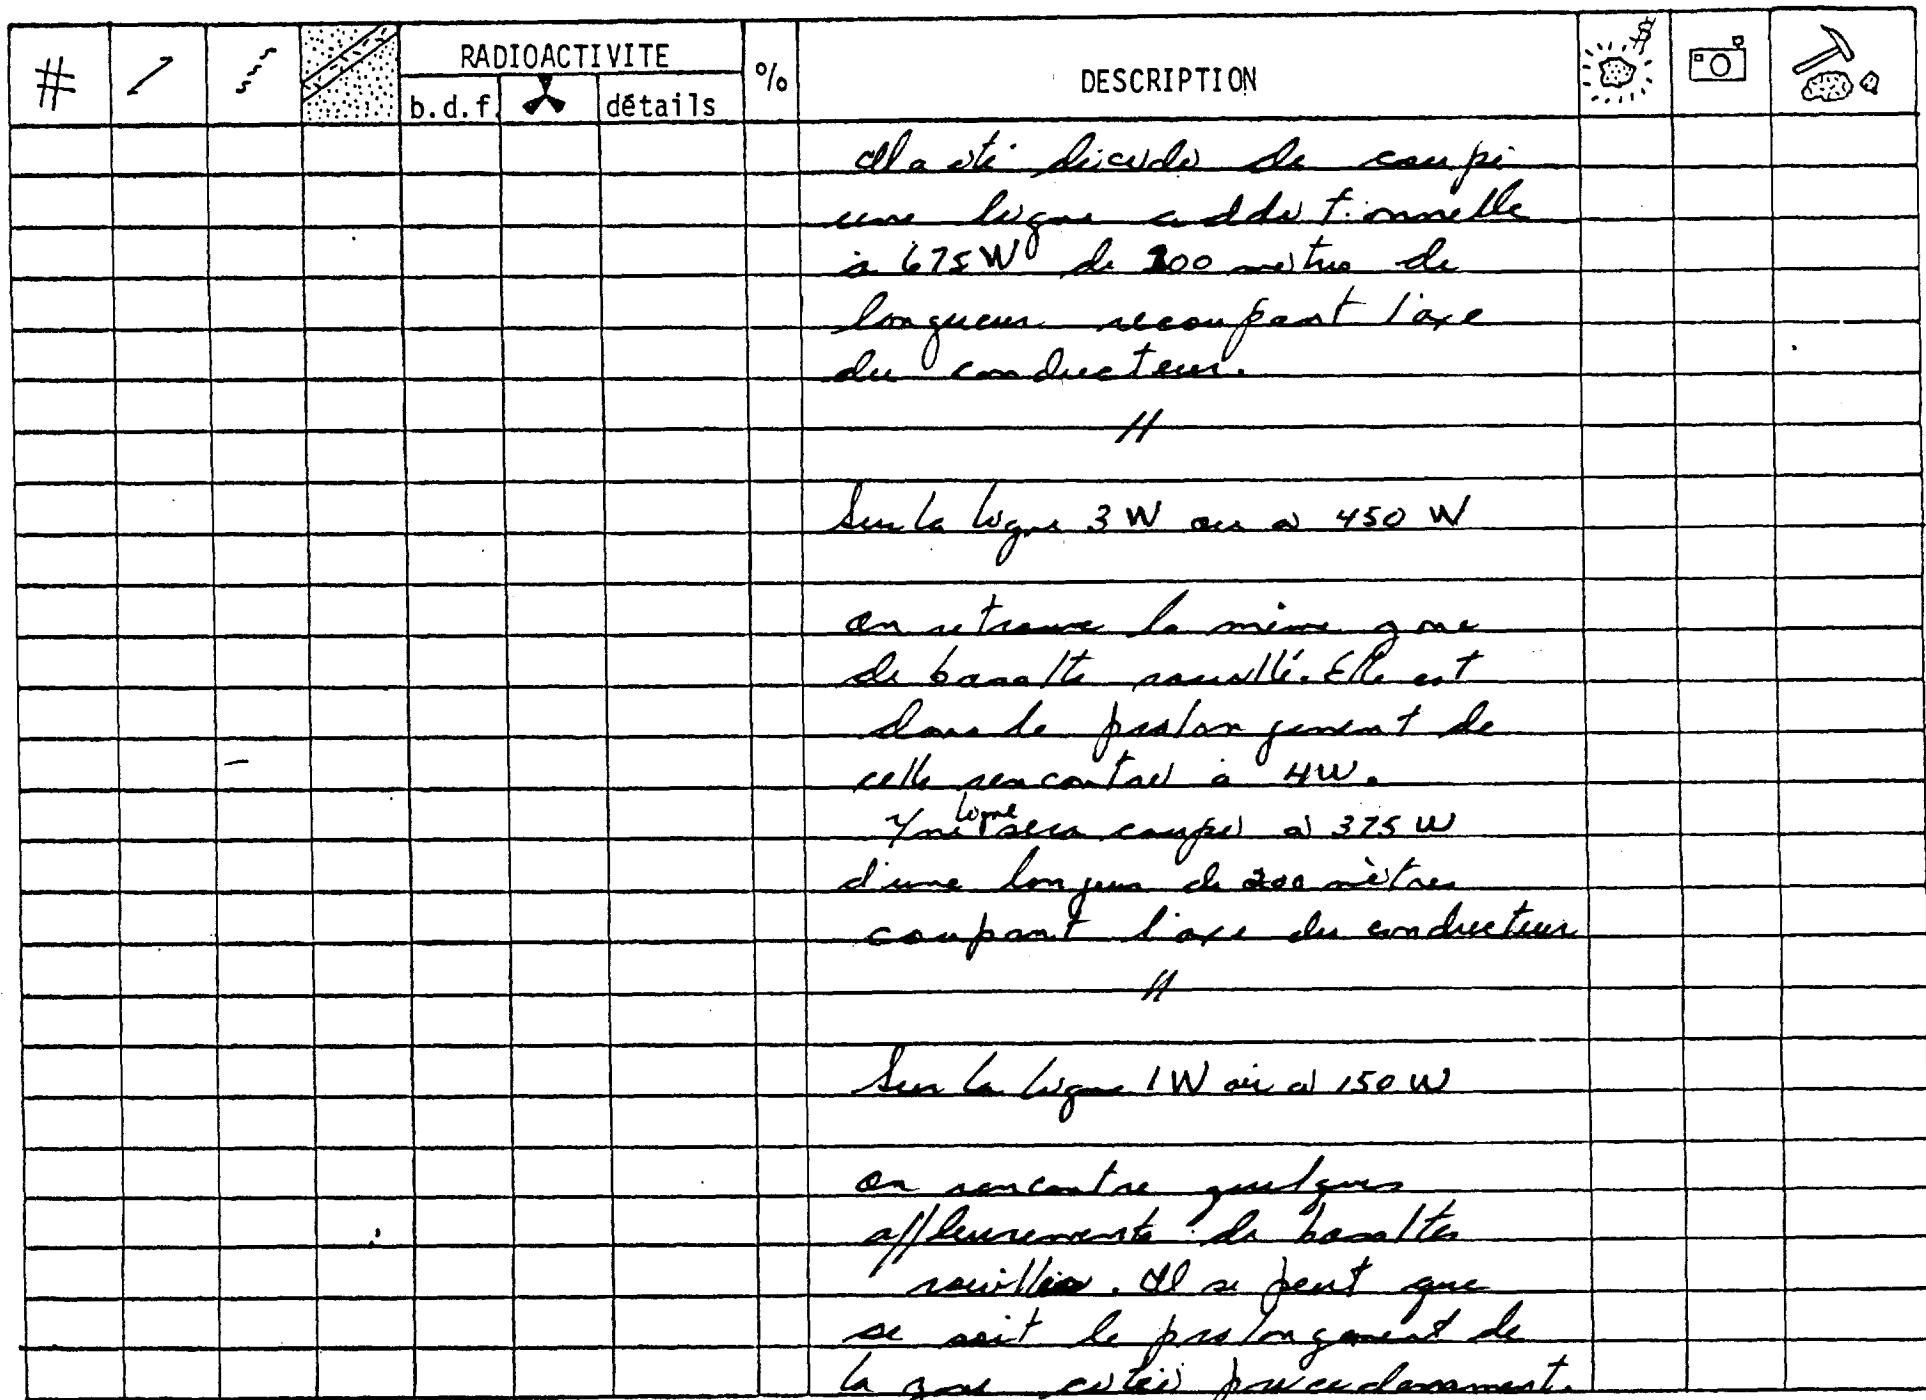 # RADIOACTIVITE % DESCRIPTION $
b.d.f. détails
Il a été décidé de coupé
une ligne additionnelle
à 675 W de 200 mètres de
longueur recoupant l'axe
du conducteur.
//
Sur la ligne 3 W ou à 450 W
on retrouve la même zone
de basalte rouillé. Elle est
dans le prolongement de
celle rencontré à 4W.
ligne
Une sera coupé à 375 W
d'une longueur de 200 mètres
coupant l'axe du conducteur
//
Sur la ligne 1 W où à 150 W
on rencontre quelques
affleurements de basaltes
rouillés. Il se peut que
se soit le prolongement de
la zone précédemment.